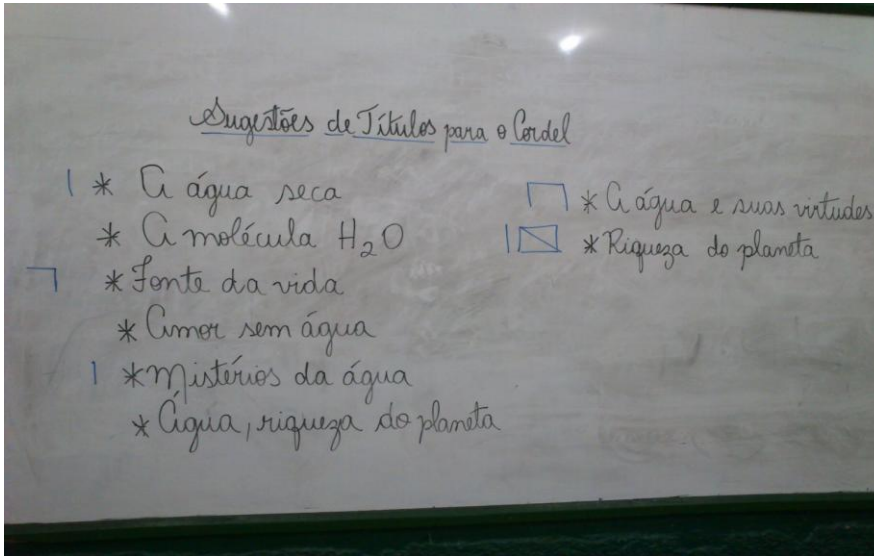 Sugestões de Títulos para o Cordel
* A água seca
* A molécula H₂O
* Fonte da vida
* Amor sem água
* Mistérios da água
* Água, riqueza do planeta
* A água e suas virtudes
* Riqueza do planeta